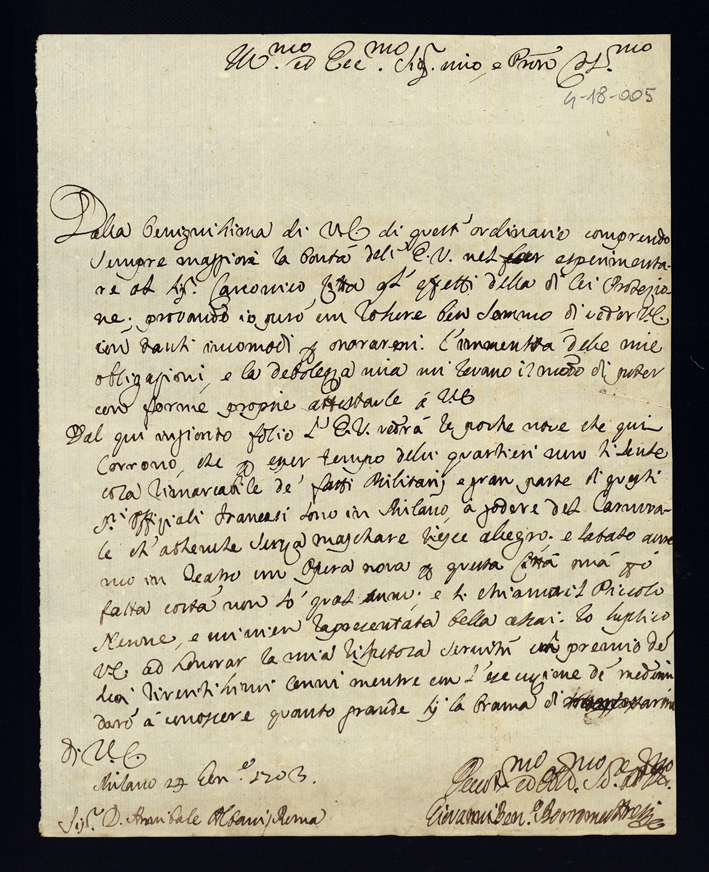 Ill.mo ed Ecc.mo Sig.r mio, e Pron Col.mo
4-18-005
Dalla benignissima di VE di quest'ordinario comprendo
sempre maggiore la bontà dell'E.V. nel esperimenta-
re al Sig.r Canonico gl'effetti della di lei Protezio-
ne; provando io però un rossore ben sommo di veder VE
con tanti incomodi onorarmi. L'immensità delle mie
obligazioni, e la debolezza mia mi levano il modo di poter
con forme proprie attestarle à VE
Dal qui ingionto folio L'E.V. vedrà le poche nove che qui
corrono, che per esser tempo delli quartieri non si sente
cosa rimarcabile de' fatti Militari, e gran parte di questi
Sri Offiziali Francesi sono in Milano, a godere del Carnova-
le ch'abbenche senza maschare riesce allegro. e sabato
mo in Teatro un Opera nova per questa Città mà
fatta costà non sò qual anno; e si chiama il Piccolo
Nerone, e mi vien rapresentata bella assai. Io suplico
VE ad honorar la mia rispetosa servitù col premio de'
suoi riveritissimi cenni mentre con l'esecuzione de' medemi
darò à conoscere quanto grande sij la brama di
di VE
Milano 24 Gen.o 1703.
Sig.r D. Annibale Albani, Roma
Giovanni Ben.o Borromeo Arese